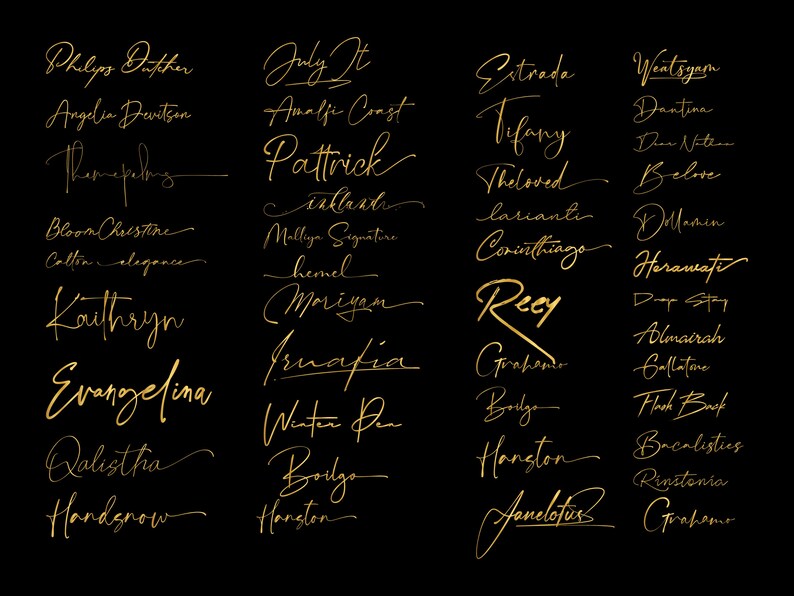 Philips Dutcher
Angelia Davitson
Themepalms
Bloom Christine
Calton elegance
Kaithryn
Evangelina
Qalistha
Handsnow
July It
Amalfi Coast
Pattrick
inkland
Malliya Signature
hemel
Mariyam
Irnafia
Winter Pea
Boilgo
Hanston
Estrada
Tifany
Theloved
larianti
Corinthiago
Reey
Grahamo
Boilgo
Hanston
Janelotus
Weatsyam
Dantina
Dear Nathan
Belove
Dollamin
Herawati
Stay
Almairah
Gallatone
Flash Back
Bacalisties
Rinstonia
Grahamo